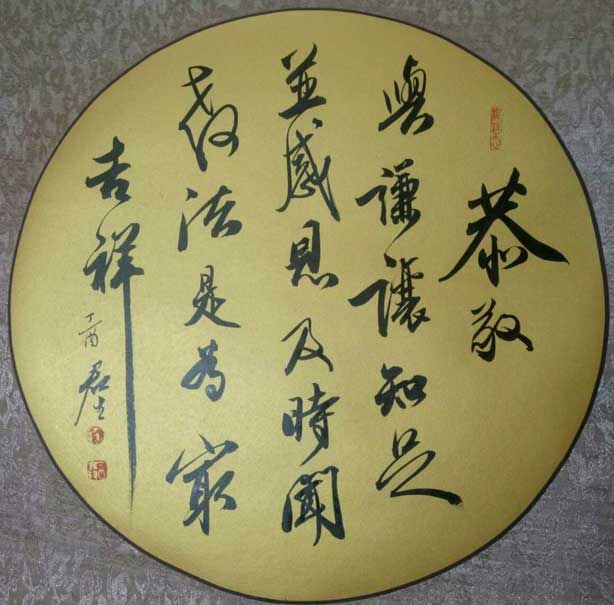 恭敬
與謙讓知足
並感恩及時聞
教法是為最
吉祥
丁酉 君士